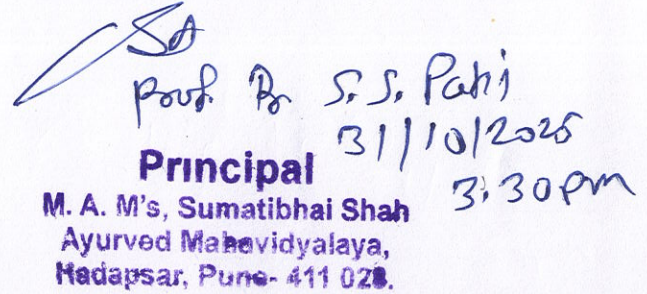 Prof. Dr S. S. Patil
31/10/2025
3.30 pm
Principal
M. A. M's, Sumatibhai Shah
Ayurved Mahavidyalaya,
Hadapsar, Pune- 411 028.